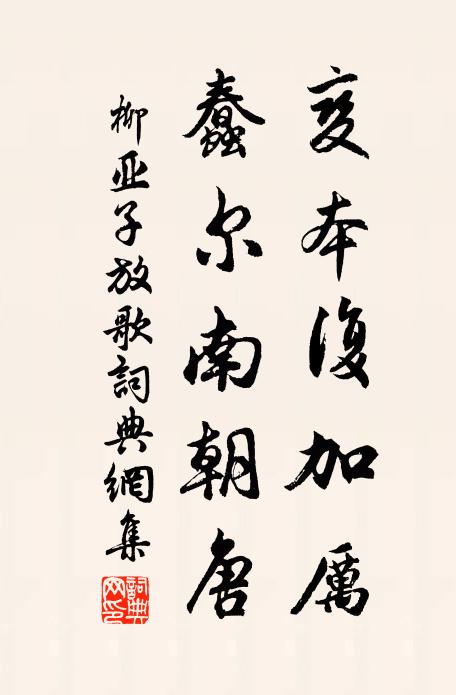 变本復加厲
蠢尔南朝唐
柳亚子放歌詞典網集
詞典网印